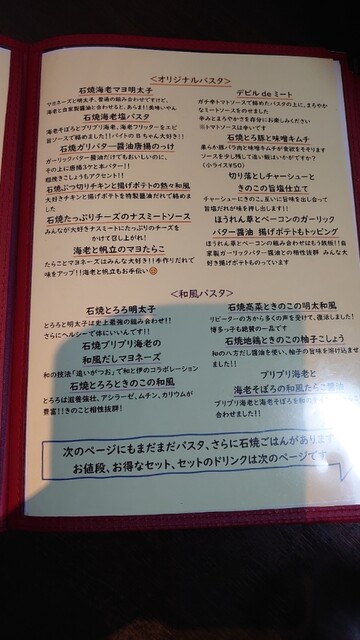 <オリジナルパスタ>
石焼海老マヨ明太子
マヨネーズと明太子、普通の組み合わせですけど、
海老と自家製醤油と合わせると、あらま!!美味いやん
石焼海老塩パスタ
海老そぼろとプリプリ海老、海老フリッターをエビ
旨ソースで絡めました!!バイトのBちゃん大好き!!
石焼ガリバター醤油唐揚のっけ
ガーリックバター醤油だけでもおいしいのに、
その上に唐揚3ケと本バター!!
相性抜きこしょうもアクセント!!
石焼ぶつ切りチキンと揚げポテトの熱々和風
大好きチキンと揚げポテトを特製醤油だれで絡めま
した
石焼たっぷりチーズのナスミートソース
みんなが大好きナスミートにたっぷりのチーズを
かけて召し上がれ!
海老と帆立のマヨたらこ
たらことマヨネーズはみんな大好き!!手作りだれで
味をアップ!!海老と帆立もお手伝い😊
デビル de ミート
ガチ辛トマトソースで絡めたパスタの上に、まろやか
なミートソースをのせました
辛みとまろやかさを自分にお楽しみください
※トマトソースは辛いです
石焼とろ豚と味噌キムチ
柔らか豚バラ肉と味噌キムチが食欲をそそります
ソースを少し残して追い飯はいかがですか?
(小ライス¥50)
切り落としチャーシューと
きのこの旨塩仕立て
チャーシューにきのこ。互いに旨味を出し合って
旨塩だれが味を押し出します!!
ほうれん草とベーコンのガーリック
バター醤油 揚げポテトもトッピング
ほうれん草とベーコンの組み合わせはもう鉄板!!自
家製ガーリックバター醤油との相性抜群 みんな大
好き揚げポテトものっています
<和風パスタ>
石焼とろろ明太子
とろろと明太子は史上最強の組み合わせ!!
さらにヘルシーで体にいいんです!!
石焼プリプリ海老の
和風だしマヨネーズ
和の技法「追いがつお」で和と伊のコラボレーション
石焼とろろときのこの和風
とろろは滋養強壮、アシラーゼ、ムチン、カリウムが
豊富!!きのこと相性抜群!
石焼高菜ときのこの明太和風
リピーターの方から多くの声を受けて、復活しました!
博多っ子も絶賛の一品です
石焼地鶏ときのこの柚子こしょう
和のハ方だし醤油を使い、柚子の旨味を溶け込ませ
ました!!
プリプリ海老と
海老そぼろの和風たらこ醤油
プリプリ海老と海老そぼろを和の
合わせました!!
次のページにもまだまだパスタ、さらに石焼ごはんがあります
お値段、お得なセット、セットのドリンクは次のページです